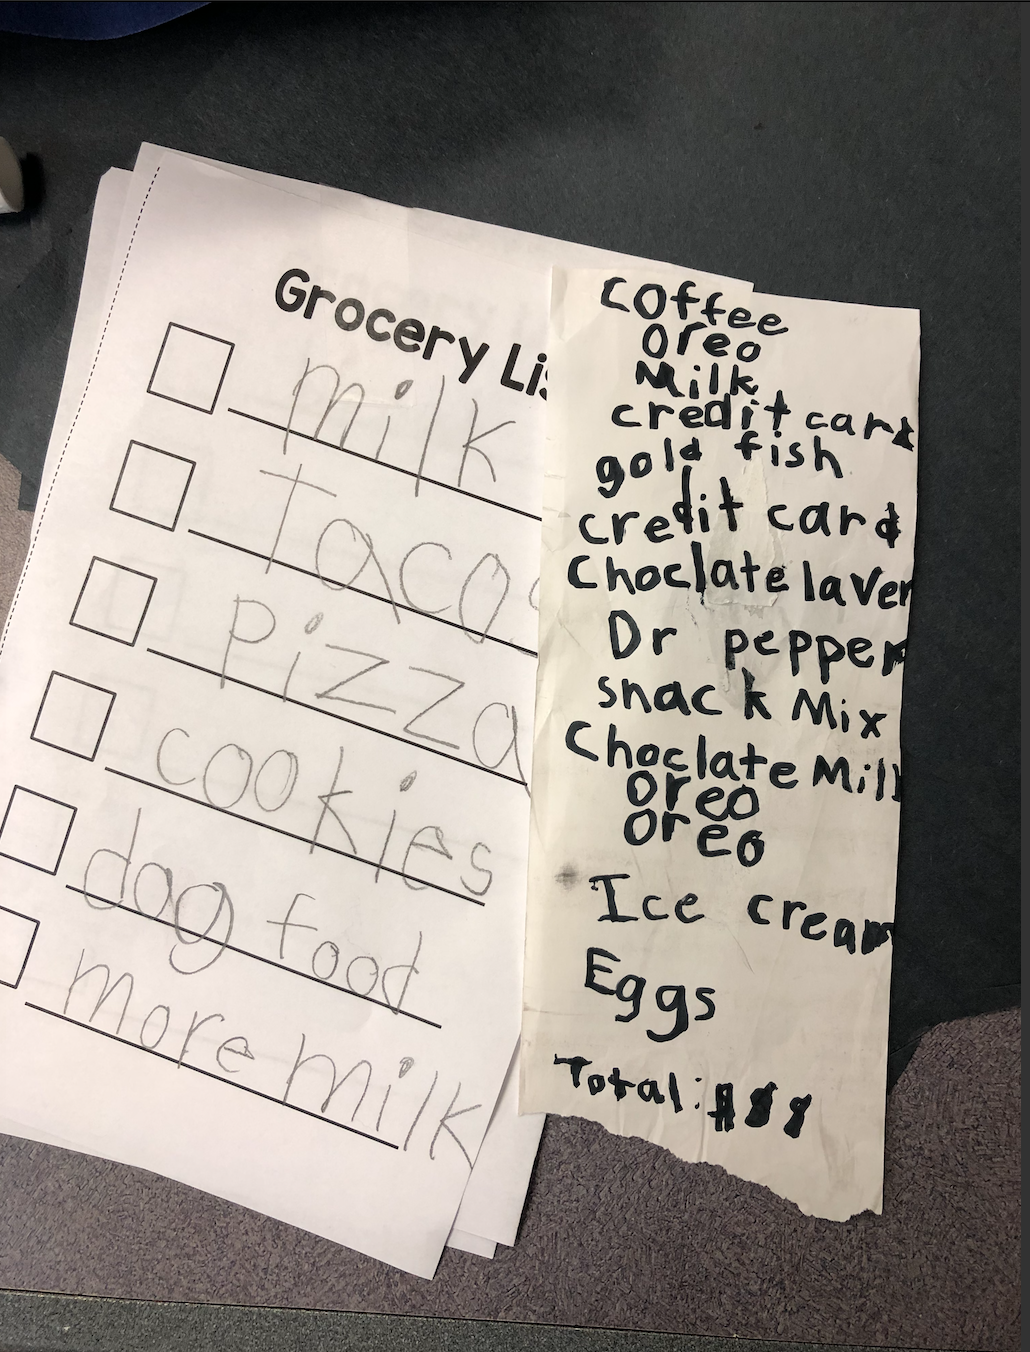 Grocery Lis
milk
Tacos
pizza
cookies
dog food
more milk
coffee
oreo
Milk
credit card
gold fish
credit card
Choclate laver
Dr pepper
snack Mix
Choclate Mill
oreo
oreo
Ice cream
Eggs
Total: